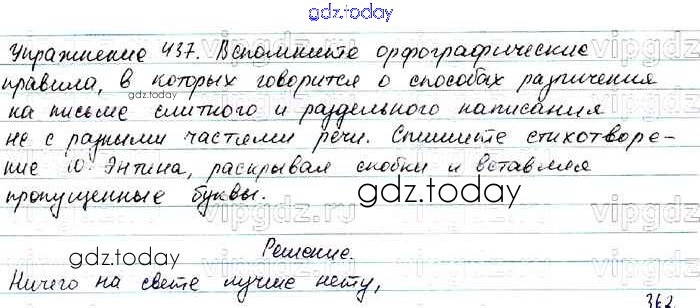 gdz.today
Упражнение 437. Вспомните орфографические
правила, в которых говорится о способах различения
gdz.today
на письме слитного и раздельного написания
не с разными частями речи. Спишите стихотворе-
ние Ю. Энтина, раскрывая скобки и вставляя
пропущенные буквы.
gdz.today
gdz.today
Решение.
Ничего на свете лучше нету,
362